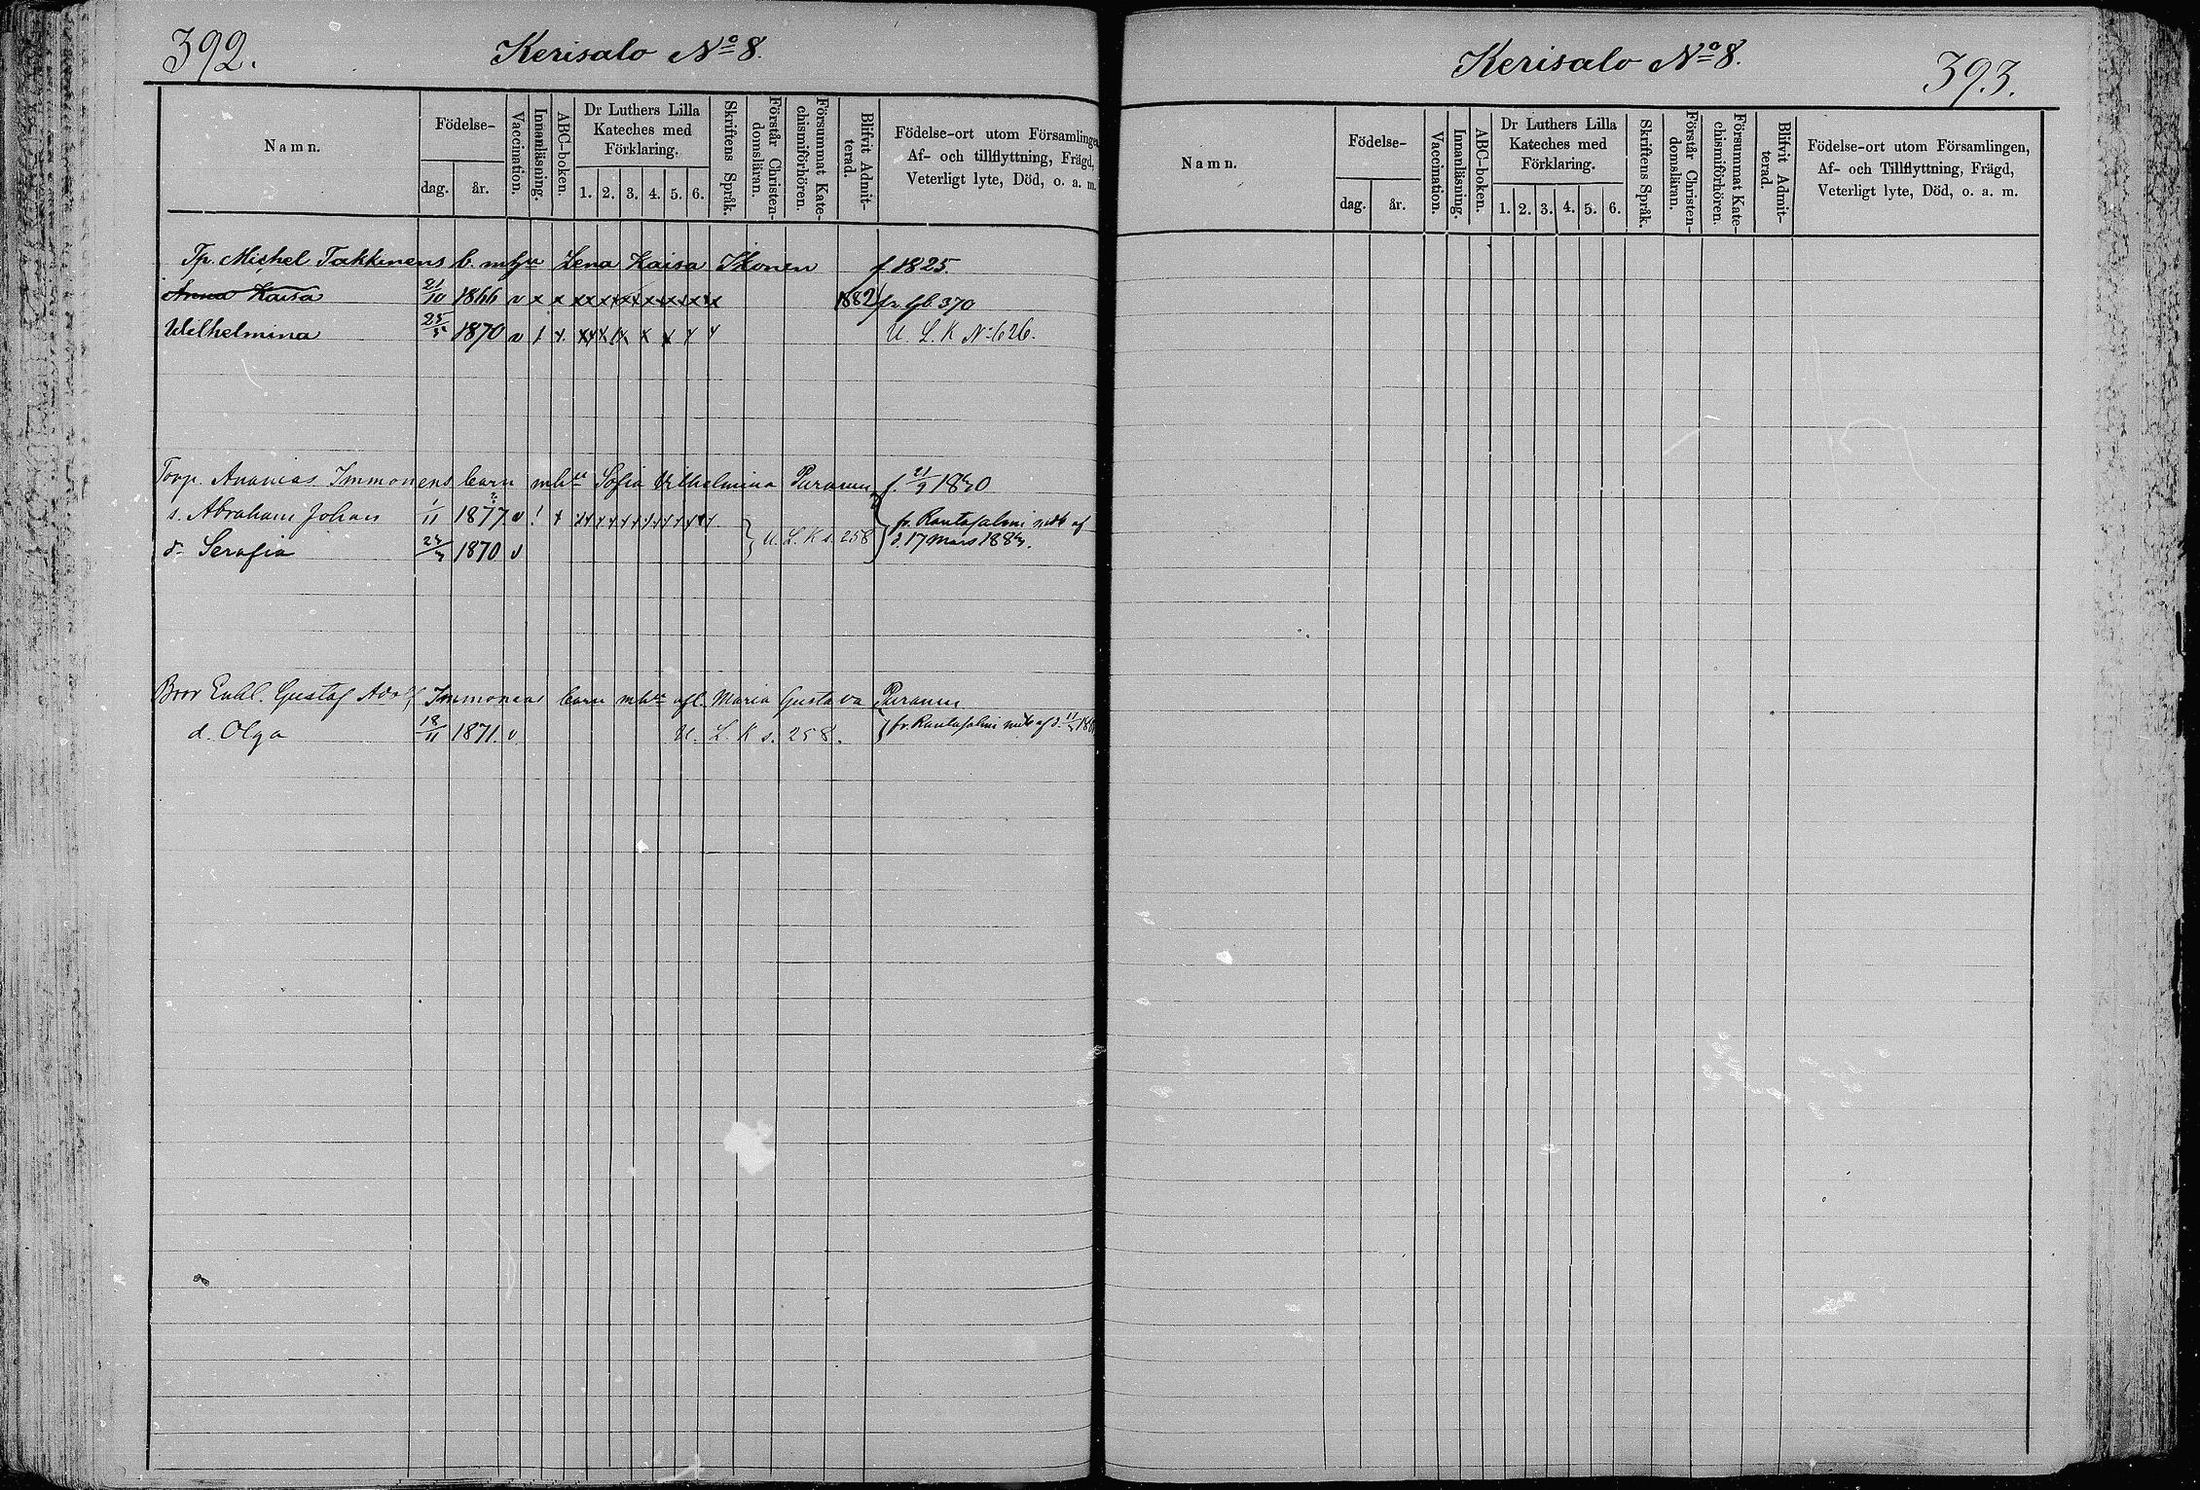 392.
Kerisalo No 8.
Namn.
Födelse-
dag.
år.
Vaccination.
Innanläsning.
ABC-boken.
Dr Luthers Lilla
Kateches med
Förklaring.
1. 2. 3. 4. 5. 6.
Skriftens Språk.
Förstår Christen-
domsläran.
Försummat Kate-
chismiförhören.
Blifvit Admit-
terad.
Födelse-ort utom Församlingen,
Af- och tillflyttning, Frägd,
Veterligt lyte, Död, o. a. m.
Tp. Michel Takkinens b. m Lena Kaisa Ikonen f 1825
Anna Kaisa 21/10 1866 v x x x x x x x x x x x x x 1882 fr. 370
Wilhelmina 25 1870 v x x x x x x x x U. L. K No 626.
Torp. Ananias Immonens barn Sofia Vilhelmina Puranen f. 21/9 1840
s. Abraham Johan 1/11 1877 v ! x x x x x x x x x x fr. Rantasalmi af
d. Serafia 1870 v U. L. K s. 258 d. 17 mars 188
Bror Enkl. Gustaf Adolf Immonens barn Maria Gustava Puranen
d. Olga 18/11 1871. v. U. L. K s. 258. fr. Rantasalmi
Kerisalo No 8.
393.
Namn.
Födelse-
dag.
år.
Vaccination.
Innanläsning.
ABC-boken.
Dr Luthers Lilla
Kateches med
Förklaring.
1. 2. 3. 4. 5. 6.
Skriftens Språk.
Förstår Christen-
domsläran.
Försummat Kate-
chismiförhören.
Blifvit Admit-
terad.
Födelse-ort utom Församlingen,
Af- och Tillflyttning, Frägd,
Veterligt lyte, Död, o. a. m.